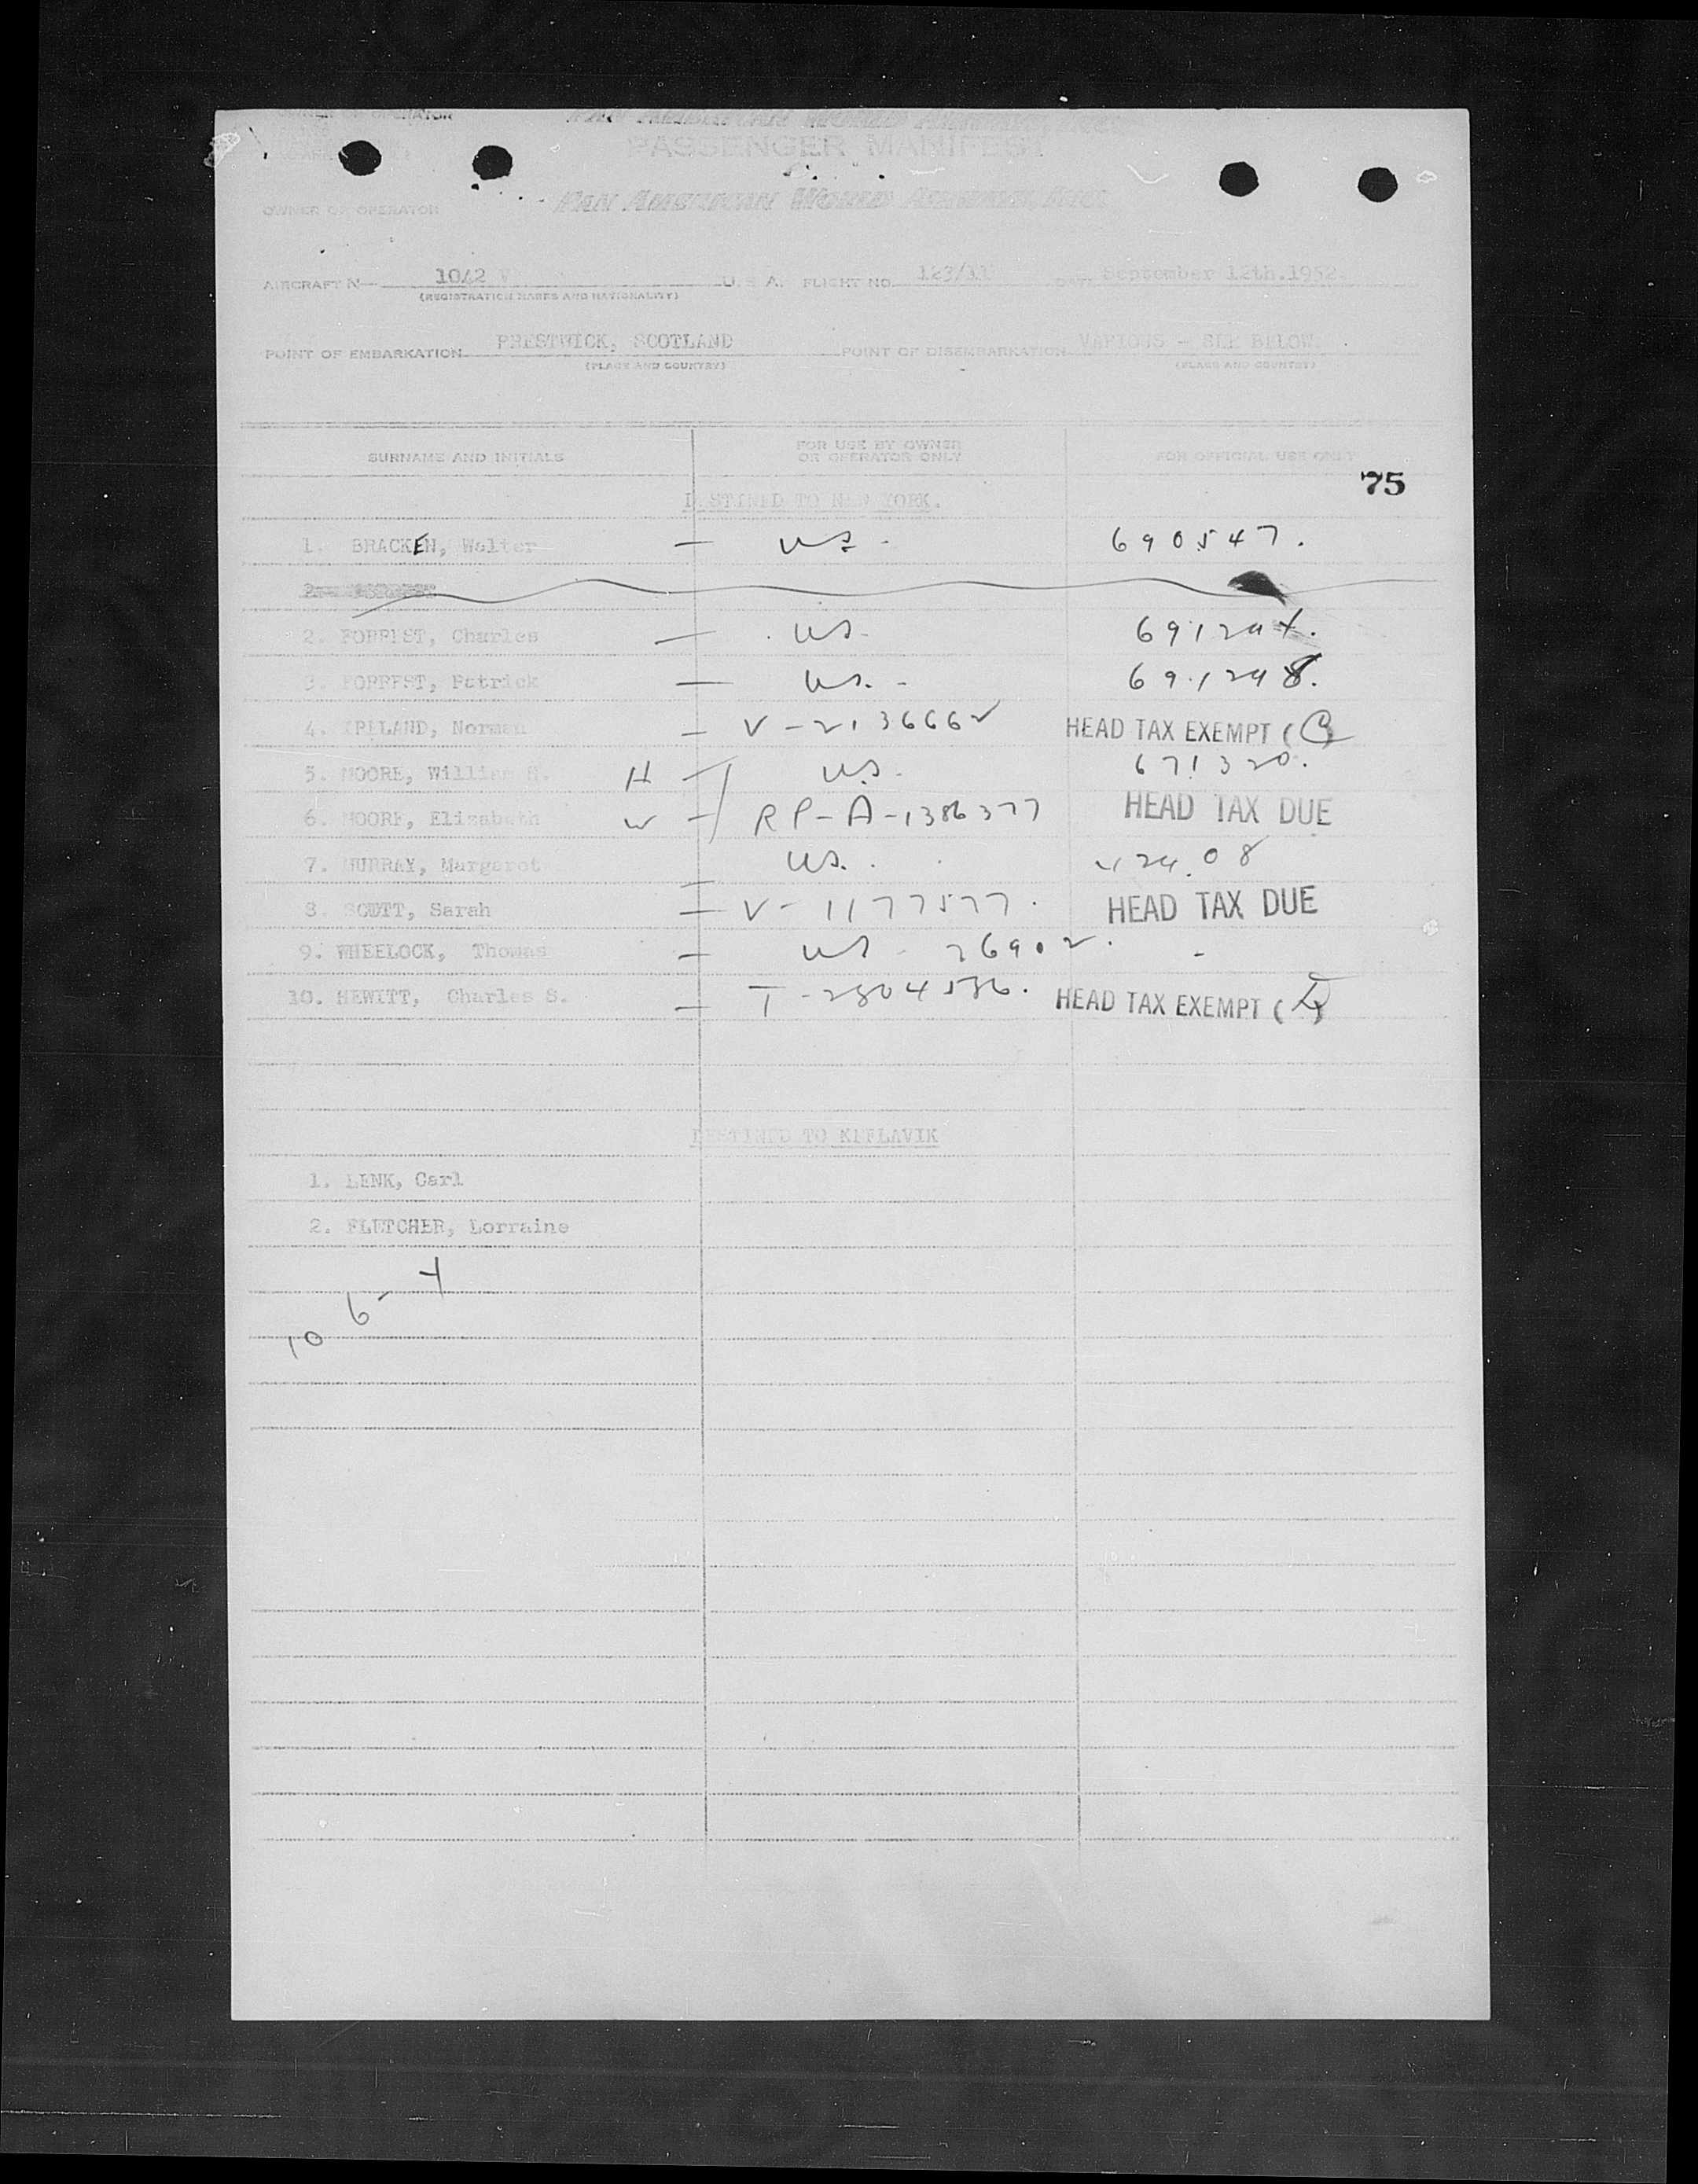 OWNER OR OPERATOR PAN AMERICAN WORLD AIRWAYS, INC.
PASSENGER MANIFEST
OWNER OR OPERATOR PAN AMERICAN WORLD AIRWAYS, INC.
AIRCRAFT N 1042 V U. S. A. FLIGHT NO. 123/11 DATE September 12th.1952.
(REGISTRATION MARKS AND NATIONALITY)
POINT OF EMBARKATION PRESTWICK, SCOTLAND POINT OF DISEMBARKATION VARIOUS - SEE BELOW.
(PLACE AND COUNTRY) (PLACE AND COUNTRY)
SURNAME AND INITIALS FOR USE BY OWNER OR OPERATOR ONLY FOR OFFICIAL USE ONLY
75
DESTINED TO NEW YORK.
1. BRACKEN, Walter — US - 690547.
2. FORREST, Charles — US. 
3. FORREST, Patrick — US. - 691298.
4. IRELAND, Norman — V-2136662 HEAD TAX EXEMPT (C)
5. MOORE, William H. H — US. 671320.
6. MOORE, Elizabeth W — RP-A-1386377 HEAD TAX DUE
7. MURRAY, Margaret — US.
8. SCOTT, Sarah — V-1177577. HEAD TAX DUE
9. WHEELOCK, Thomas — US - 26902. -
10. HEWITT, Charles S. — T-2804586. HEAD TAX EXEMPT (
DESTINED TO KEFLAVIK
1. LINK, Carl
2. FLETCHER, Lorraine
10 6-4